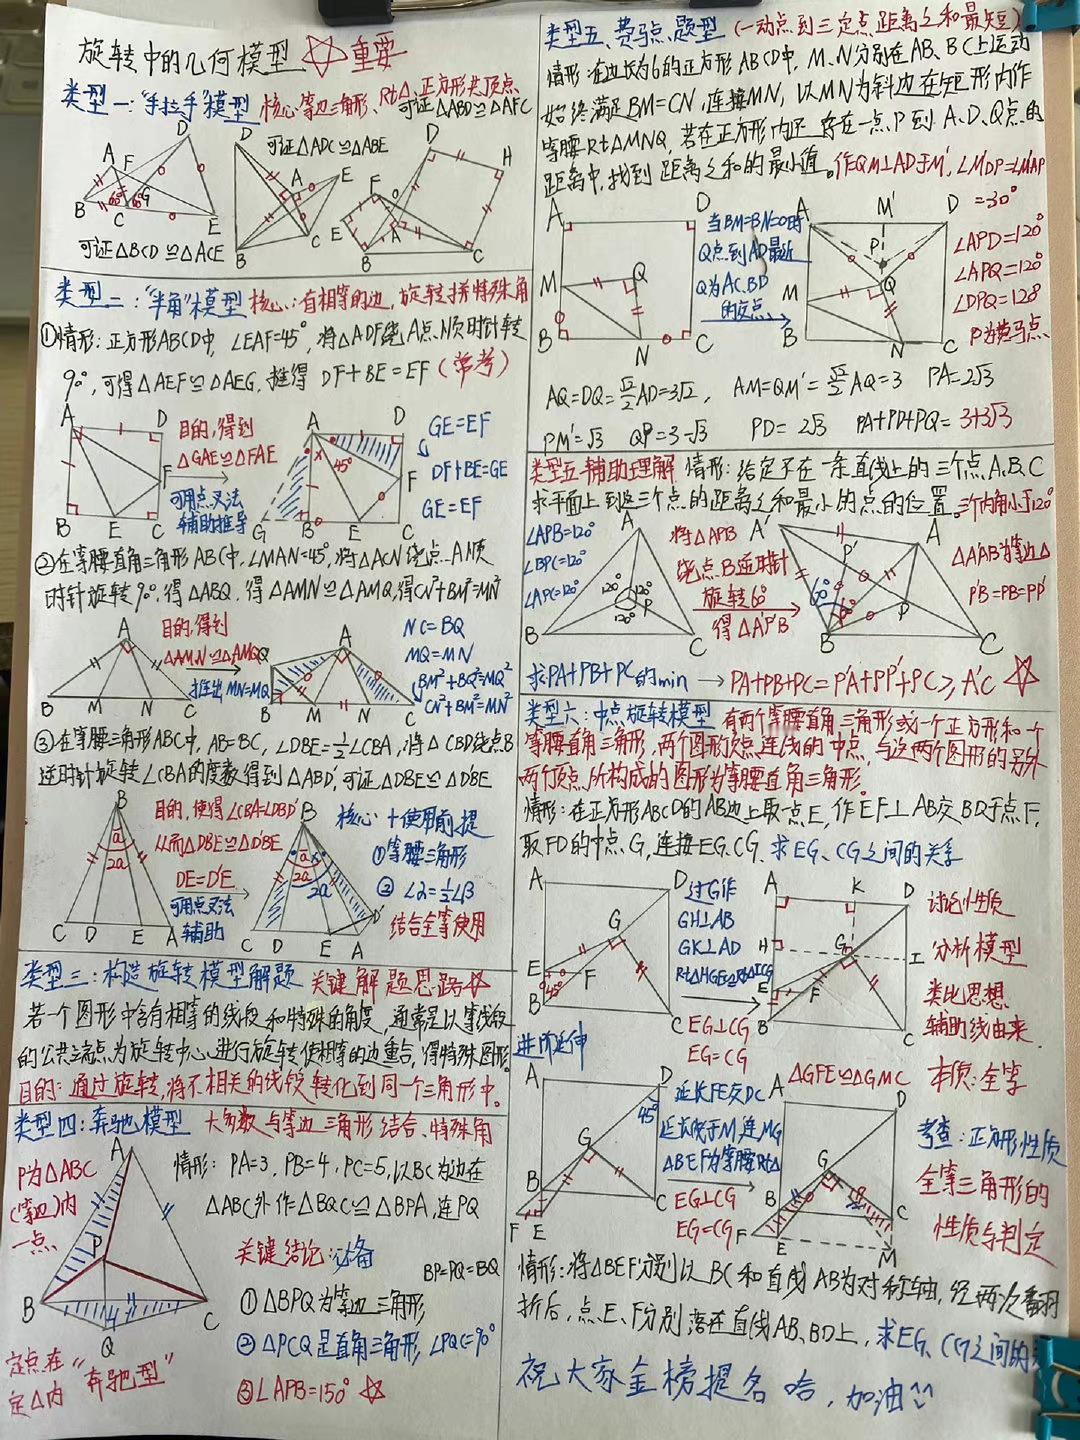 旋转中的几何模型 ☆重要
类型一:"手拉手"模型 核心:等边三角形、Rt△、正方形共顶点
可证△ABD≌△AFC
可证△ADC≌△ABE
可证△BCD≌△ACE
类型二:"半角"模型 核心:有相等的边,旋转拼特殊角
①情形:正方形ABCD中,∠EAF=45°,将△ADF绕A点顺时针转
90°,可得△AEF≌△AEG,推得 DF+BE=EF(常考)
目的,得到
△GAE≌△FAE
可用点叉法
辅助推导
45°
GE=EF
DF+BE=GE
GE=EF
②在等腰直角三角形ABC中,∠MAN=45°,将△ACN绕点A顺
时针旋转90°,得△ABQ,得△AMN≌△AMQ,得CN²+BM²=MN²
目的,得到
△AMN≌△AMQ
推出MN=MQ
NC=BQ
MQ=MN
BM²+BQ²=MQ²
CN²+BM²=MN²
③在等腰三角形ABC中,AB=BC,∠DBE=½∠CBA,将△CBD绕点B
逆时针旋转∠CBA的度数得到△ABD',可证△DBE≌△D'BE
目的,使得∠CBA=∠DBD'
从而△DBE≌△D'BE
DE=D'E
可用点叉法
辅助
核心+使用前提
①等腰三角形
②∠2=½∠β
结合全等使用
类型三:构造旋转模型解题 关键解题思路☆
若一个图形中含有相等的线段和特殊的角度,通常是以等线段
的公共端点为旋转中心进行旋转使相等的边重合,得特殊图形.
目的:通过旋转,将不相关的线段转化到同一个三角形中。
类型四:奔驰模型 大多数与等边三角形结合、特殊角
P为△ABC
(等边)内
一点
情形:PA=3,PB=4,PC=5,以BC为边在
△ABC外作△BQC≌△BPA,连PQ
关键结论:必备
BP=PQ=BQ
①△BPQ为等边三角形
②△PCQ是直角三角形,∠PQC=90°
③∠APB=150°☆
定点在
定△内
"奔驰型"
类型五、费马点题型(一动点到三定点距离之和最短)
情形:在边长为6的正方形ABCD中,M、N分别在AB、BC上运动
始终满足BM=CN,连接MN,以MN为斜边在矩形内作
等腰Rt△MNQ,若在正方形内还存在一点P到A、D、Q点的
距离中,找到距离之和的最小值。作QM⊥AD于M',∠M'DP=∠M'AP
=30°
当BM=BN=0时
Q点到AD最近
Q为AC,BD
的交点
∠APD=120°
∠APQ=120°
∠DPQ=128°
P为费马点
AQ=DQ=√2/2AD=3√2, AM=QM'=√2/2AQ=3 PA=2√3
PM'=√3 QP=3-√3 PD=2√3 PA+PD+PQ=3+3√3
类型五辅助理解 情形:给定不在一条直线上的三个点A、B、C
求平面上到这三个点的距离之和最小的点的位置。三个内角小于120°
∠APB=120°
∠BPC=120°
∠APC=120°
将△APB
绕点B逆时针
旋转60°
得△A'P'B
△A'AB为等边△
P'B=PB=PP'
求PA+PB+PC的min → PA+PB+PC=P'A+PP'+PC≥A'C ☆
类型六:中点旋转模型 有两个等腰直角三角形或一个正方形和一个
等腰直角三角形,两个图形顶点连线的中点,与这两个图形的另外
两个顶点所构成的图形为等腰直角三角形。
情形:在正方形ABCD的AB边上取一点E,作EF⊥AB交BD于点F,
取FD的中点G,连接EG、CG.求EG、CG之间的关系
过G作
GH⊥AB
GK⊥AD
Rt△HGE≌Rt△ICG
EG⊥CG
EG=CG
讨论性质
分析模型
类比思想
辅助线由来
进阶延伸
延长FE交DC
延长线于M,连MG
△BEF为等腰Rt△
EG⊥CG
EG=CG
△GFE≌△GMC 本质:全等
考查:正方形性质
全等三角形的
性质与判定
情形:将△BEF分别以BC和直线AB为对称轴,经两次翻
折后,点E、F分别落在直线AB、BD上,求EG、CG之间的
祝大家金榜提名哈,加油